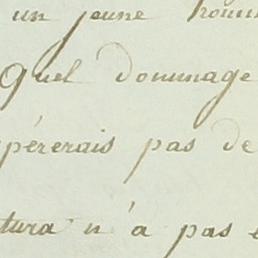 un jeune
Quel dommage
pérerais pas de
tura n'a pas